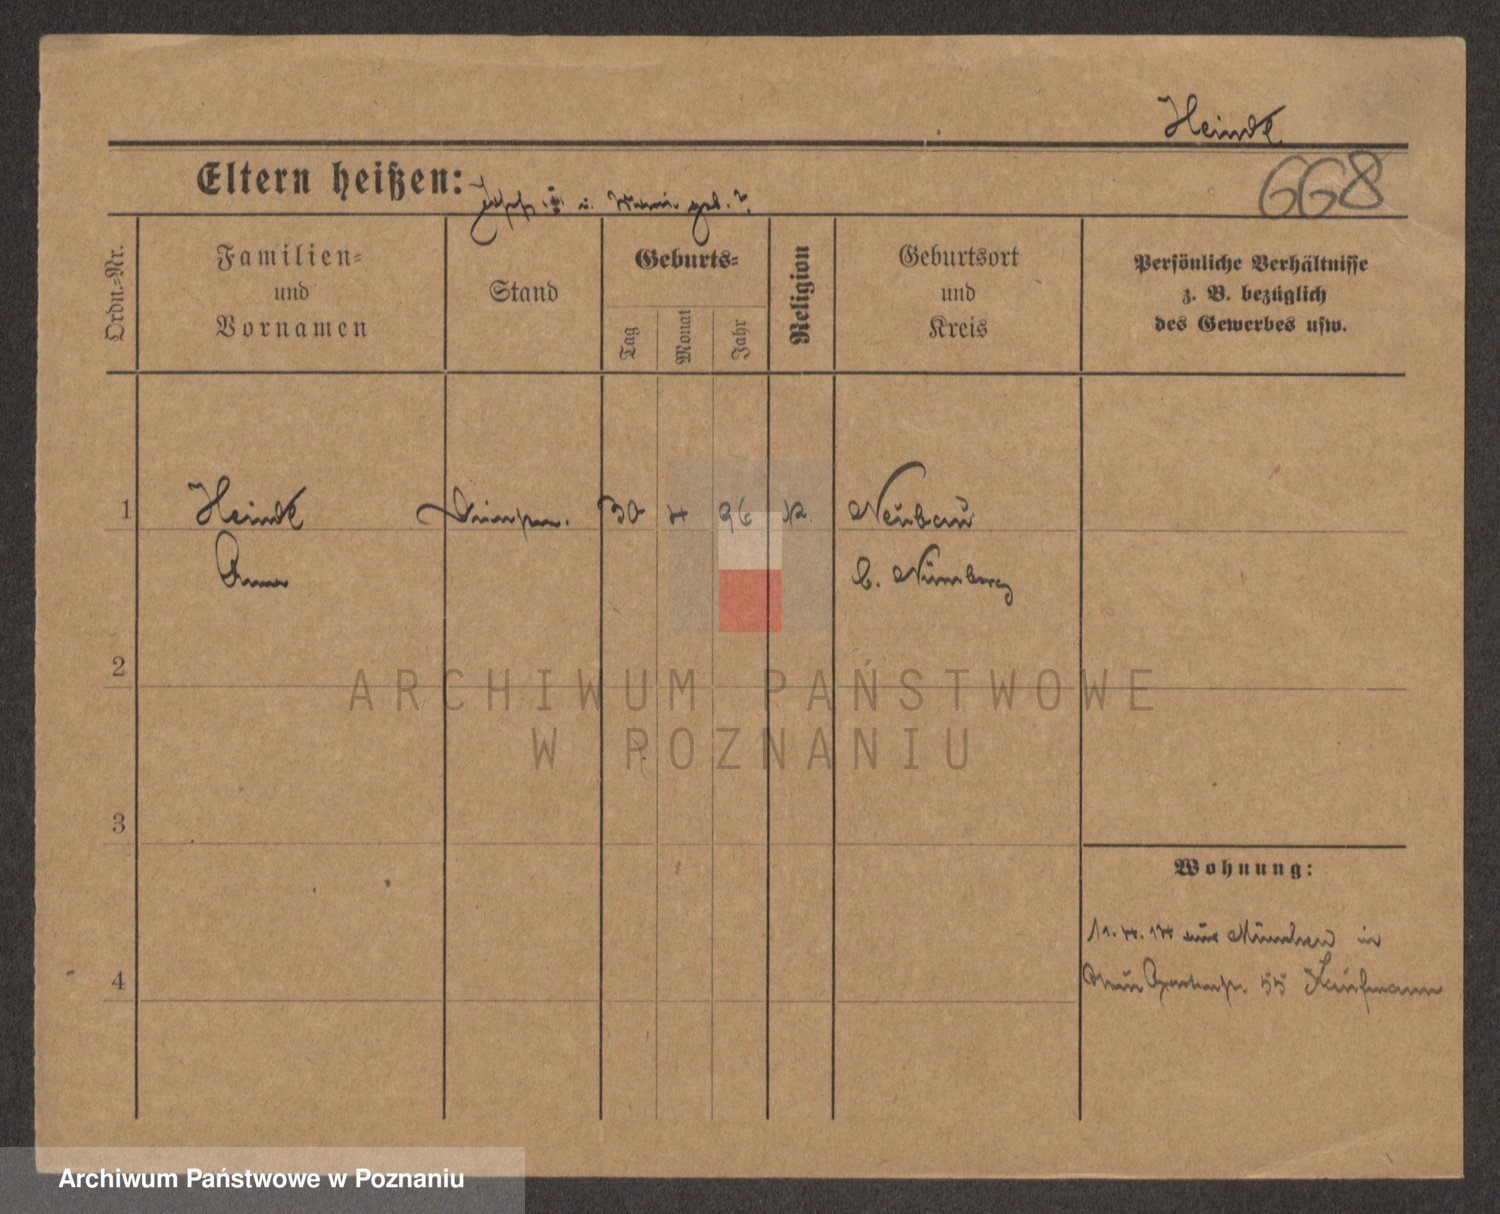 Heindl
Eltern heißen: Joseph u. Maria geb. ?
668
Ordn.-Nr.
Familien-
und
Vornamen
Stand
Geburts-
Tag
Monat
Jahr
Religion
Geburtsort
und
Kreis
Persönliche Verhältnisse
z. B. bezüglich
des Gewerbes usw.
1 Heindl 30 4 96 k. Neubau
Anna b. Nürnberg
2
ARCHIWUM PAŃSTWOWE
W POZNANIU
3
Wohnung:
11.4.14 aus München in
55 Kaufmann
4
Archiwum Państwowe w Poznaniu